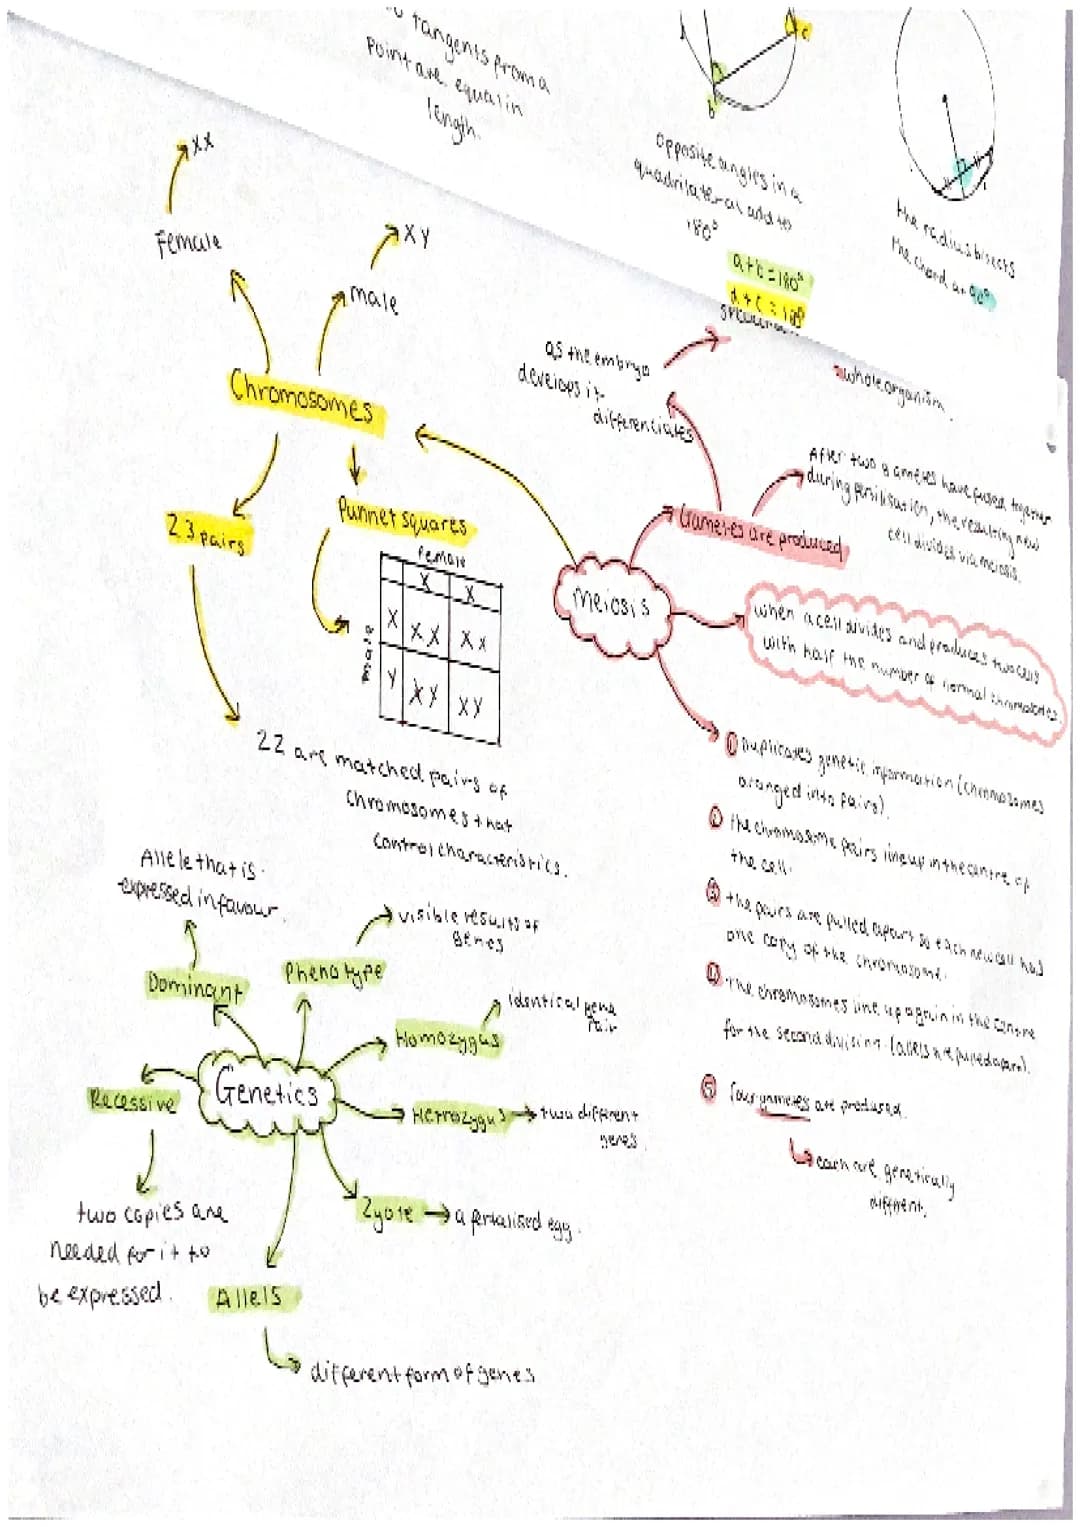 tangents from a
point are equal in
length.
c
b
opposite angles in a
quadrilateral add to
180°
a+c=180°
d+c=180°
the radius bisects
the chord at 90°
XX
Female
XY
male
Chromosomes
23 pairs
Punnet squares
female
X X
male
X XX XX
Y XY XY
22 are matched pairs of
chromosomes that
control characteristics.
as the embryo
develops it
differenciates
whole organism.
Gametes are produced
After two gametes have fused together
during fertilisation, the resulting new
cell divides via meiosis.
meiosis
when a cell divides and produces two cells
with half the number of normal chromosomes.
① Duplicates genetic information (chromosomes
aranged into pairs).
② the chromosome pairs line up in the centre of
the cell.
③ the pairs are pulled apart so each new cell has
one copy of the chromosome.
④ The chromosomes line up again in the centre
for the second division. (allels are pulled apart).
⑤ four gametes are produced.
each are genetically
different.
Allele that is
expressed in favour.
Dominant
visible results of
genes
Phenotype
identical gene
pair
Homozygus
Genetics
Recessive
Hetrozygus
two different
genes.
two copies are
needed for it to
be expressed.
Zyote
a fertalised egg.
Allels
different form of genes